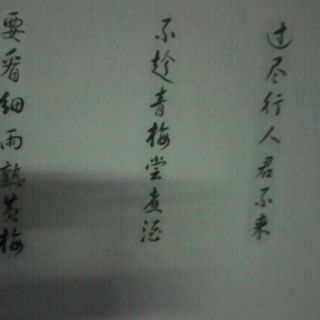 过尽行人君不来
不趁青梅尝煮酒
要看细雨熟黄梅